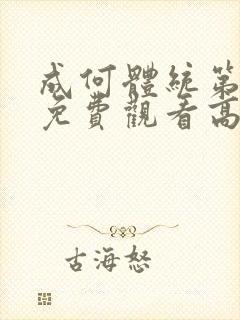 成何體統第
免費觀看高
古海怒